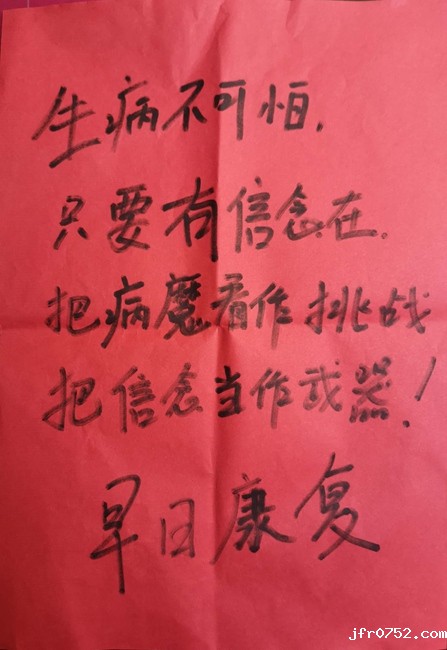 生病不可怕,
只要有信念在.
把病魔看作挑战
把信念当作武器!
早日康复
jfr0752.com